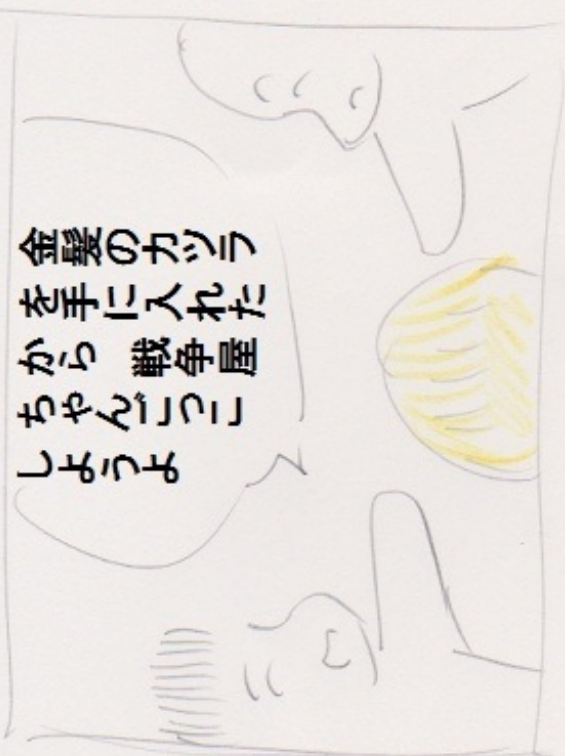 金髪のカツラ
を手に入れた
から　戦争屋
ちゃんごっこ
しようよ